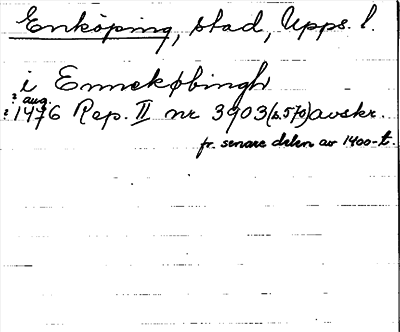 Enköping, stad, Upps. l.
i Ennekøbingh
? aug.
: 1476 Rep. II nr 3903 (s. 570) avskr.
fr. senare delen av 1400-t.